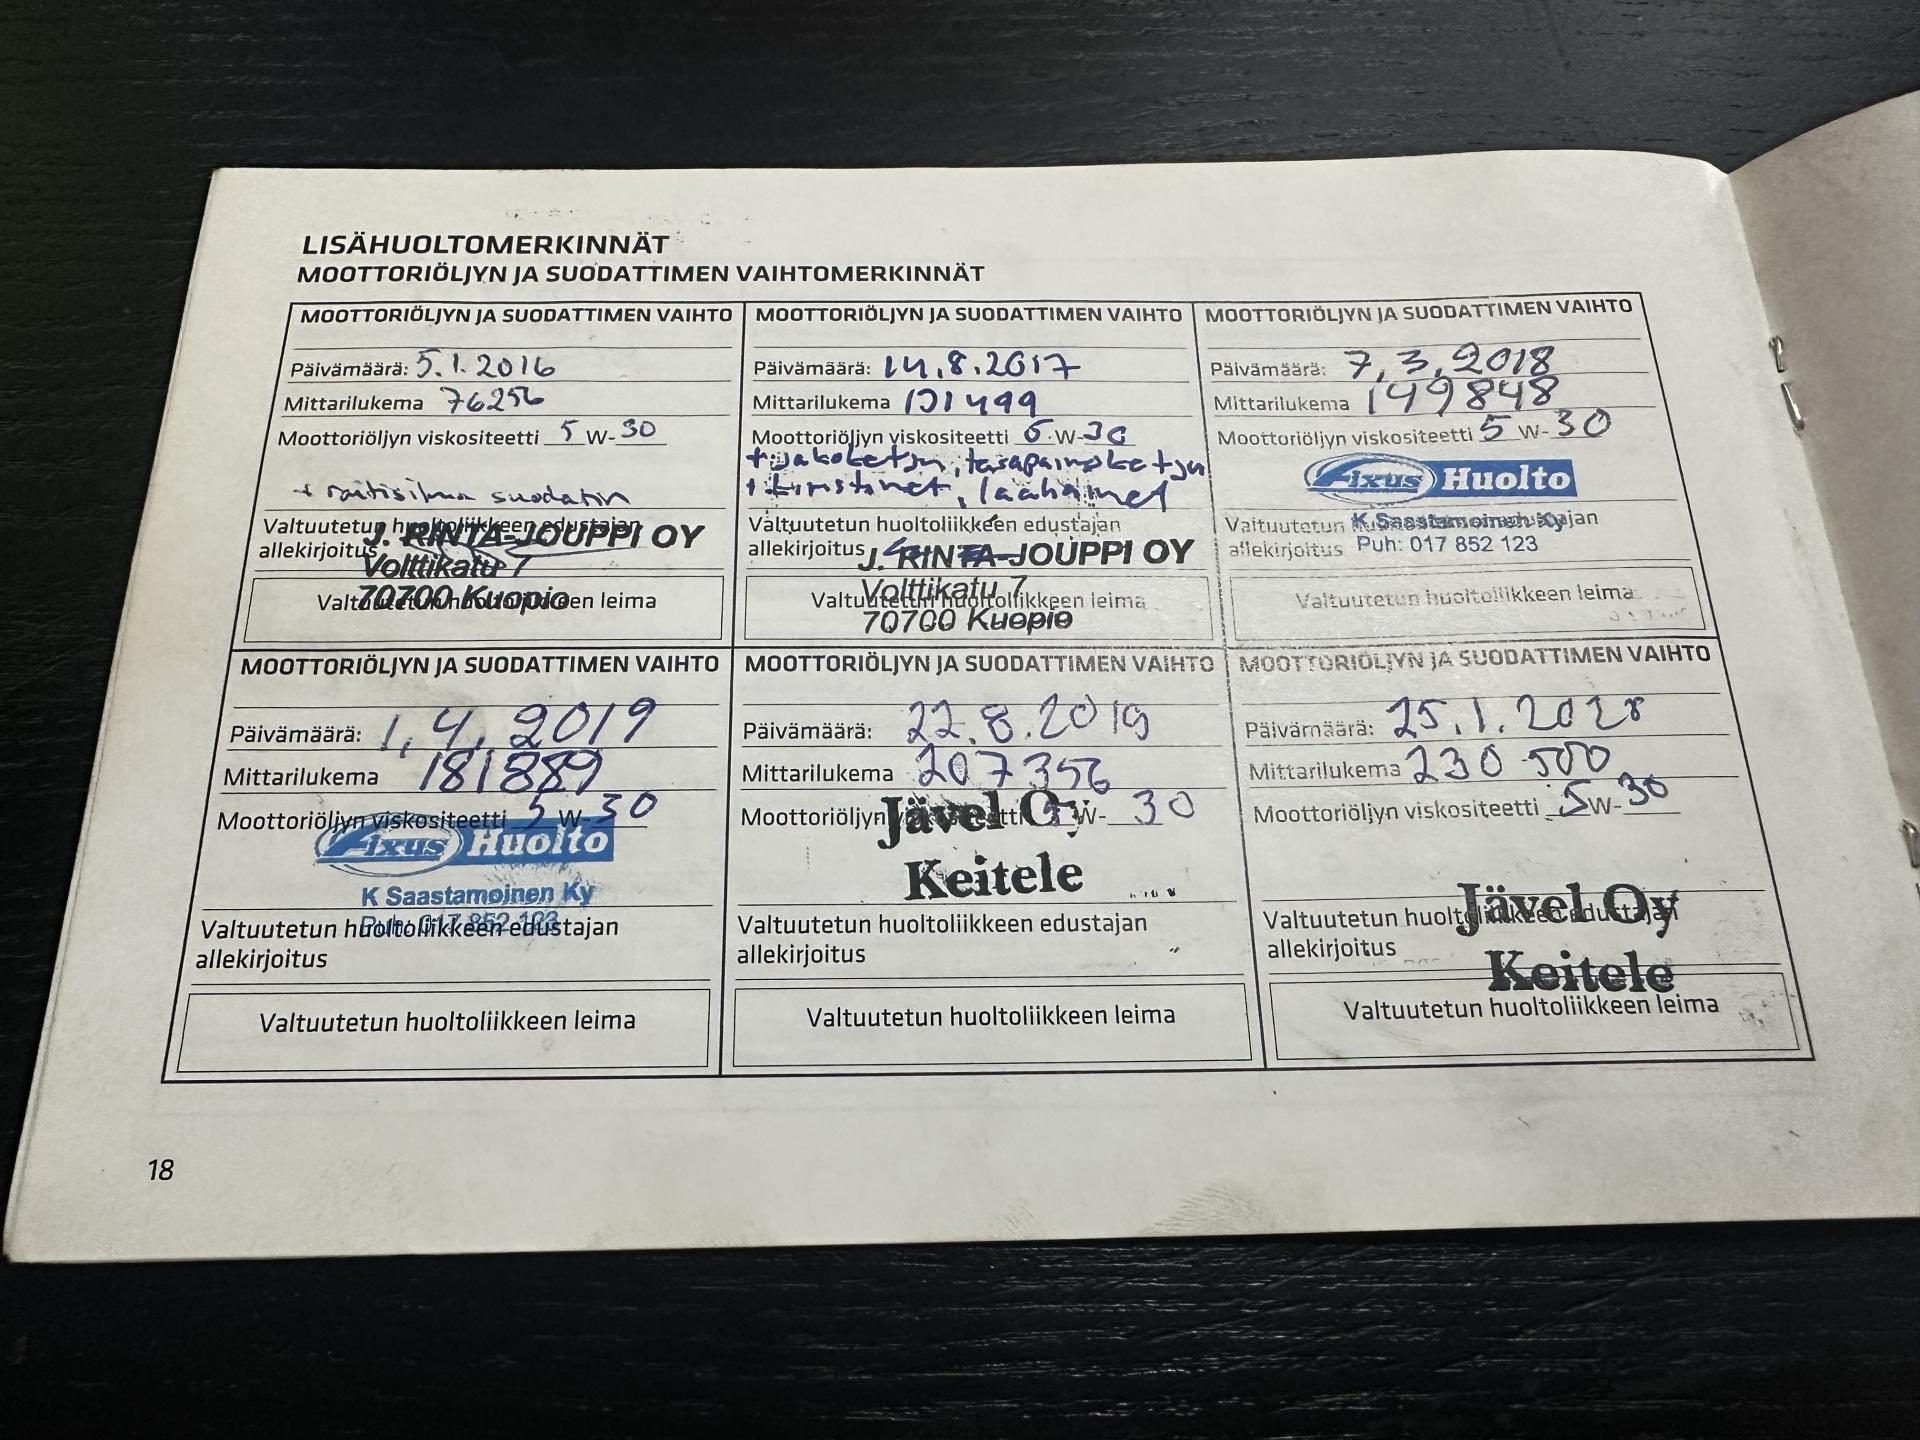 LISÄHUOLTOMERKINNÄT
MOOTTORIÖLJYN JA SUODATTIMEN VAIHTOMERKINNÄT
MOOTTORIÖLJYN JA SUODATTIMEN VAIHTO
Päivämäärä: 5.1.2016
Mittarilukema 76256
Moottoriöljyn viskositeetti 5 W-30
+ raitisilma suodatin
Valtuutetun huoltoliikkeen edustajan
allekirjoitus
J. RINTA-JOUPPI OY
Volttikatu 7
70700 Kuopio
Valtuutetun huoltoliikkeen leima
MOOTTORIÖLJYN JA SUODATTIMEN VAIHTO
Päivämäärä: 14.8.2017
Mittarilukema 131499
Moottoriöljyn viskositeetti 5 W-30
+ jakoketju, tasapainoketju
+ kiristimet, laahaimet
Valtuutetun huoltoliikkeen edustajan
allekirjoitus
J. RINTA-JOUPPI OY
Volttikatu 7
70700 Kuopio
Valtuutetun huoltoliikkeen leima
MOOTTORIÖLJYN JA SUODATTIMEN VAIHTO
Päivämäärä: 7.3.2018
Mittarilukema 149848
Moottoriöljyn viskositeetti 5 W-30
Fixus Huolto
K Saastamoinen Ky
Puh: 017 852 123
Valtuutetun huoltoliikkeen edustajan
allekirjoitus
Valtuutetun huoltoliikkeen leima
MOOTTORIÖLJYN JA SUODATTIMEN VAIHTO
Päivämäärä: 1.4.2019
Mittarilukema 181889
Moottoriöljyn viskositeetti 5 W-30
Fixus Huolto
K Saastamoinen Ky
Puh: 017 852 123
Valtuutetun huoltoliikkeen edustajan
allekirjoitus
Valtuutetun huoltoliikkeen leima
MOOTTORIÖLJYN JA SUODATTIMEN VAIHTO
Päivämäärä: 22.8.2019
Mittarilukema 207356
Moottoriöljyn viskositeetti 5 W-30
Jävel Oy
Keitele
Valtuutetun huoltoliikkeen edustajan
allekirjoitus
Valtuutetun huoltoliikkeen leima
MOOTTORIÖLJYN JA SUODATTIMEN VAIHTO
Päivämäärä:
Mittarilukema 230 500
Moottoriöljyn viskositeetti 5 W-30
Jävel Oy
Keitele
Valtuutetun huoltoliikkeen edustajan
allekirjoitus
Valtuutetun huoltoliikkeen leima
18